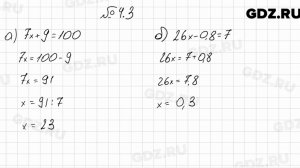 GDZ.RU
№ 4.3
а) 7x + 9 = 100
7x = 100 - 9
7x = 91
x = 91 : 7
x = 23
б) 26x - 0,8 = 7
26x = 7 + 0,8
26x = 7,8
x = 0,3
GDZ.RU